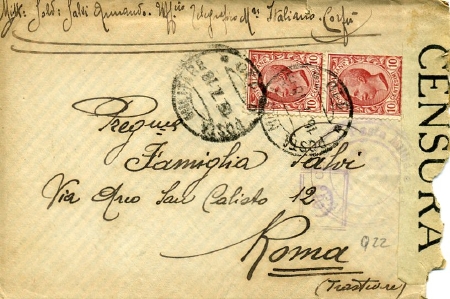 Mitt: Sold: Salvi Armando. Uffcio Telegrafico Mre Italiano. Corfù
10 10
POSTA MILITARE
CENSURA
Preg.ma
Famiglia Salvi
Via Arco San Calisto 12
Roma
(Trastevere)
922